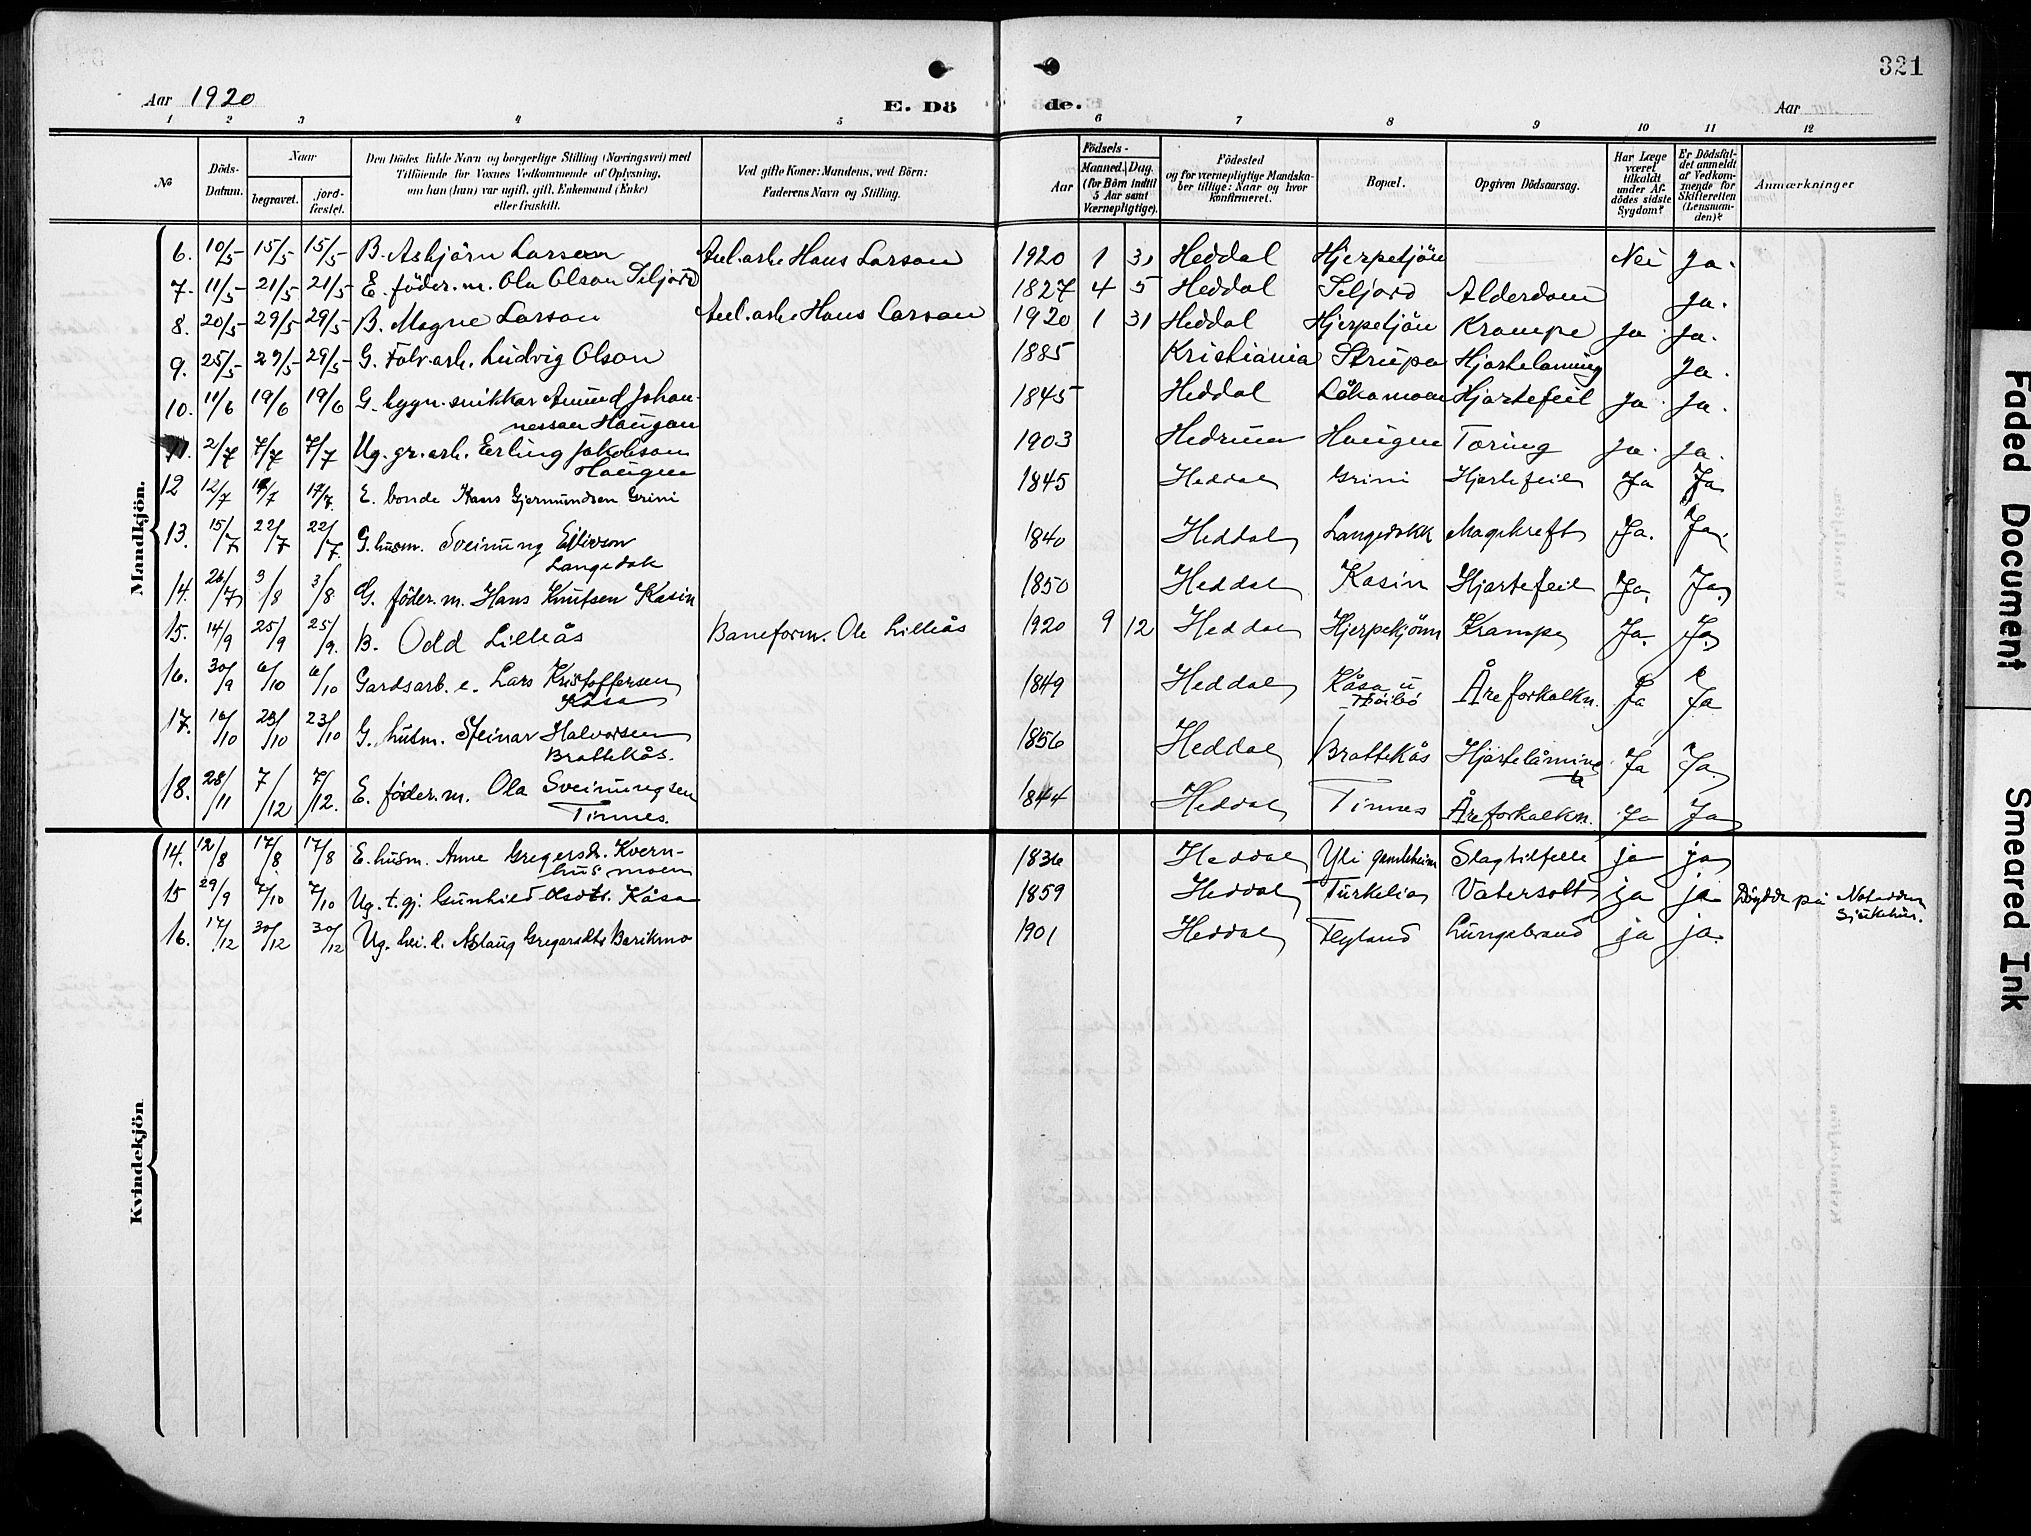 321
Aar 1920
E. Dö
de.
Aar
1 2 3 4 5 6 7 8 9 10 11 12
No
Döds-
Datum.
Naar
begravet.
jord-
fæstet.
Den Dödes fulde Navn og borgerlige Stilling (Næringsvei) med
Tilföiende for Voxnes Vedkommende af Oplysning,
om han (hun) var ugift, gift, Enkemand (Enke)
eller fraskilt.
Ved gifte Koner: Mandens, ved Börn:
Faderens Navn og Stilling.
Födsels-
Aar
Maaned. Dag.
(for Börn indtil
5 Aar samt
Værnepligtige).
Födested
og for værnepligtige Mandska-
ber tillige: Naar og hvor
konfirmeret.
Bopæl.
Opgiven Dödsaarsag.
Har Læge
været
tilkaldt
under Af-
dödes sidste
Sygdom?
Er Dödsfal-
det anmeldt
af Vedkom-
mende for
Skifteretten
(Lensman-
den)?
Anmærkninger
Mandkjön.
6. 10/5 15/5 15/5 B. Asbjörn Larson Anl.arb. Hans Larson 1920 1 31 Heddal Hjerpetjön Nei Ja.
7. 11/5 21/5 21/5 E. föder.m. Ola Olson Seljord 1827 4 5 Heddal Seljord Alderdom Ja.
8. 20/5 29/5 29/5 B. Magne Larson Anl.arb. Hans Larson 1920 1 31 Heddal Hjerpetjön Krampe Ja. Ja.
9. 25/5 29/5 29/5 G. Fabr.arb. Ludvig Olson 1885 Kristiania Strupa Hjartelaming Ja.
10. 11/6 19/6 19/6 G. bygn.snikkar Amund Johan-
nessen Haugan 1845 Heddal Låkamoen Hjartefeil Ja. Ja.
11. 2/7 7/7 7/7 Ug. gr.arb. Erling Jakobson
Haugen 1903 Hedrum Haugen Tæring Ja. Ja.
12 12/7 17/7 17/7. E. bonde Hans Gjermundsen Grini 1845 Heddal Grini Hjartefeil Ja Ja
13. 15/7 22/7 22/7. G. husm. Sveinung Eilivson
Langedak 1840 Heddal Langedakk Magekreft Ja. Ja.
14. 26/7 3/8 3/8 G. föder.m. Hans Knutsen Kasin 1850 Heddal Kasin Hjartefeil Ja. Ja.
15. 14/9 25/9 25/9. B. Odd Lilleås Baneform. Ole Lilleås 1920 9 12 Heddal Hjerpekjönn Krampe Ja. Ja.
16. 30/9 6/10 6/10 Gardsarb. e. Lars Kristoffersen
Kåsa 1849 Heddal Kåsa u Åreforkalkn. Ja Ja
17. 16/10 23/10 23/10 G. husm. Steinar Halvorsen
Brattekås. 1856 Heddal Brattekås Hjartelåming Ja Ja.
18. 28/11 7/12 7/12. E. föder.m. Ola Sveinungsen
Tinnes. 1844 Heddal Tinnes Åreforkalkn. Ja Ja
Kvindekjön
14. 12/8 17/8. 17/8 E. husm. Anne Gregersdr. Kvern-
husmoen 1836 Heddal Yli gamleheim Slagtilfelle ja ja
15 29/9 7/10 7/10 Ug. t.gj. Gunhild Olsdtr. Kåsa 1859 Heddal Turkelia Vatersott ja ja Döydde på Notodden
Sjukehus.
16. 17/12 30/12 30/12 Ug. Aslaug Gregarsdtr. Barikmo 1901 Heddal Flyland Lungebrand ja ja.
Faded Document
Smeared Ink